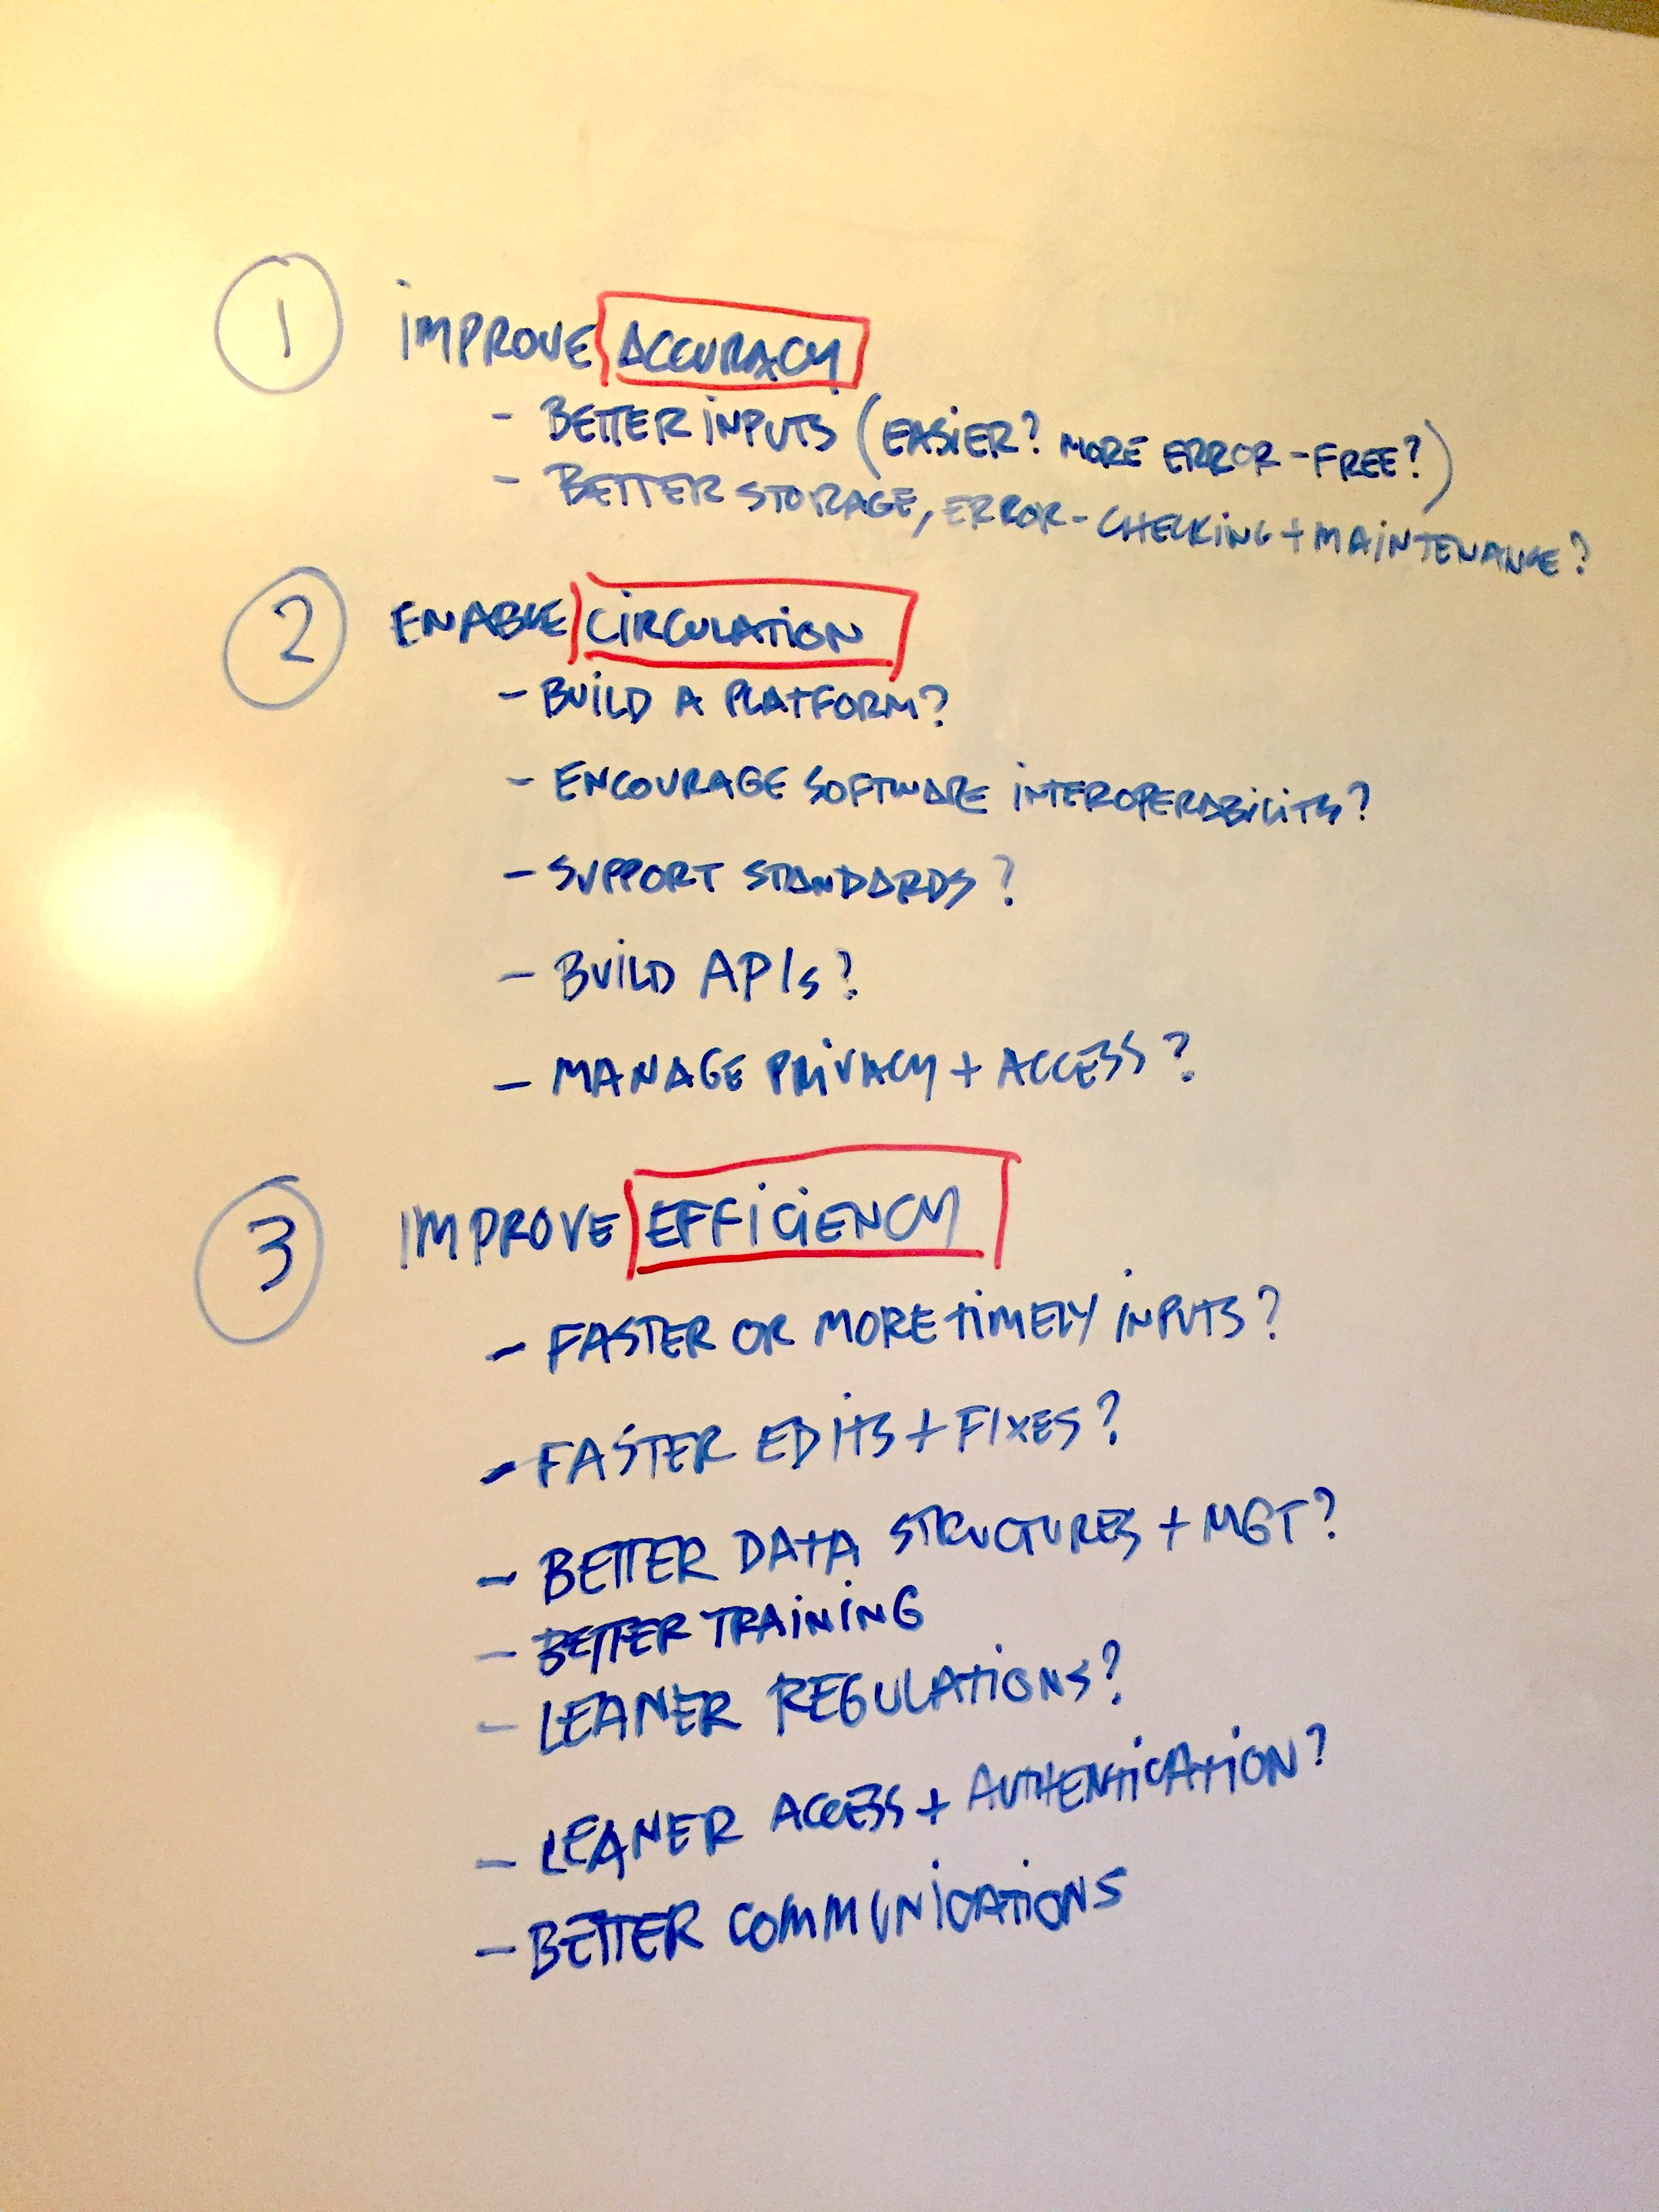 1 IMPROVE ACCURACY
- BETTER INPUTS (EASIER? MORE ERROR-FREE?)
- BETTER STORAGE, ERROR-CHECKING + MAINTENANCE?
2 ENABLE CIRCULATION
- BUILD A PLATFORM?
- ENCOURAGE SOFTWARE INTEROPERABILITY?
- SUPPORT STANDARDS?
- BUILD APIs?
- MANAGE PRIVACY + ACCESS?
3 IMPROVE EFFICIENCY
- FASTER OR MORE TIMELY INPUTS?
- FASTER EDITS + FIXES?
- BETTER DATA STRUCTURES + MGT?
- BETTER TRAINING
- LEANER REGULATIONS?
- LEANER ACCESS + AUTHENTICATION?
- BETTER COMMUNICATIONS